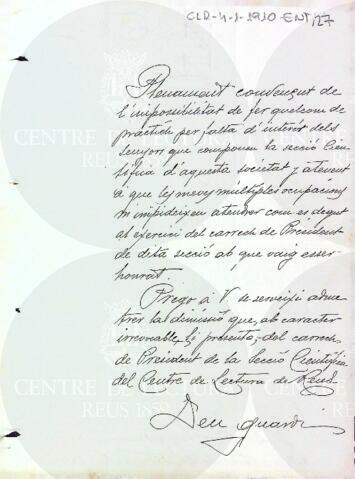 CLR-4-1-1910-ENT/27
Plenament convençut de
l'impossibilitat de fer quelcom de
práctich per falta d'interés dels
senyors que componen la secció Cien-
tífica d'aquesta societat y atenent
á que les meves múltiples ocupacions
m'impideixen atendrer com es degut
al exercici del carrech de Président
de dita secció ab que vaig esser
honrat.
Prego á V. se serveixi adme-
trer la dimissió que, ab caracter
irrevocable, li presento, del carrech
de President de la Secció Cientifica
del Centre de Lectura de Reus.
Deu guard
CENTRE DE LECTURA
REUS 1859
CENTRE DE LECTURA
REUS 1859